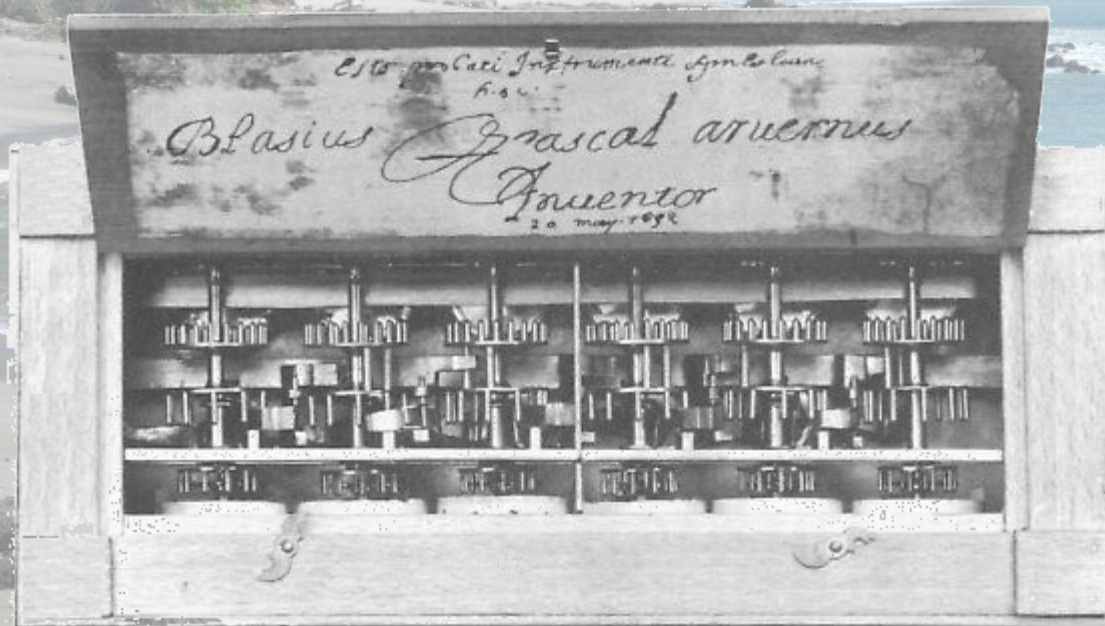 Esto probati Instrumenti
Blasius Pascal aruernus
Inuentor
20 may. 1652